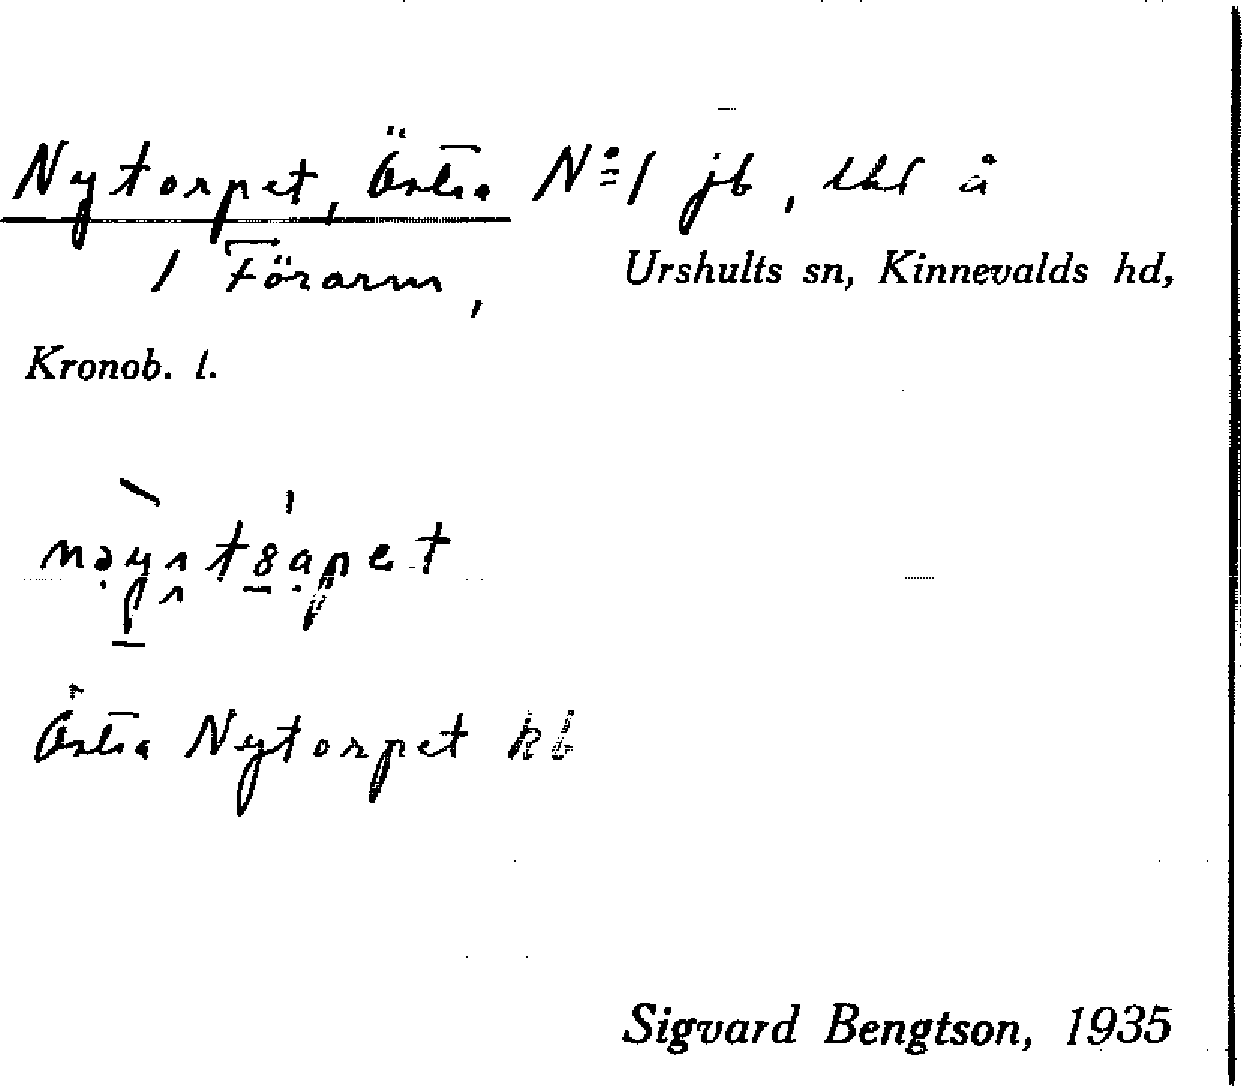 Nytorpet, Östra No 1 jb, lht å
1 Förarm, Urshults sn, Kinnevalds hd,
Kronob. l.
Östra Nytorpet kb
Sigvard Bengtson, 1935